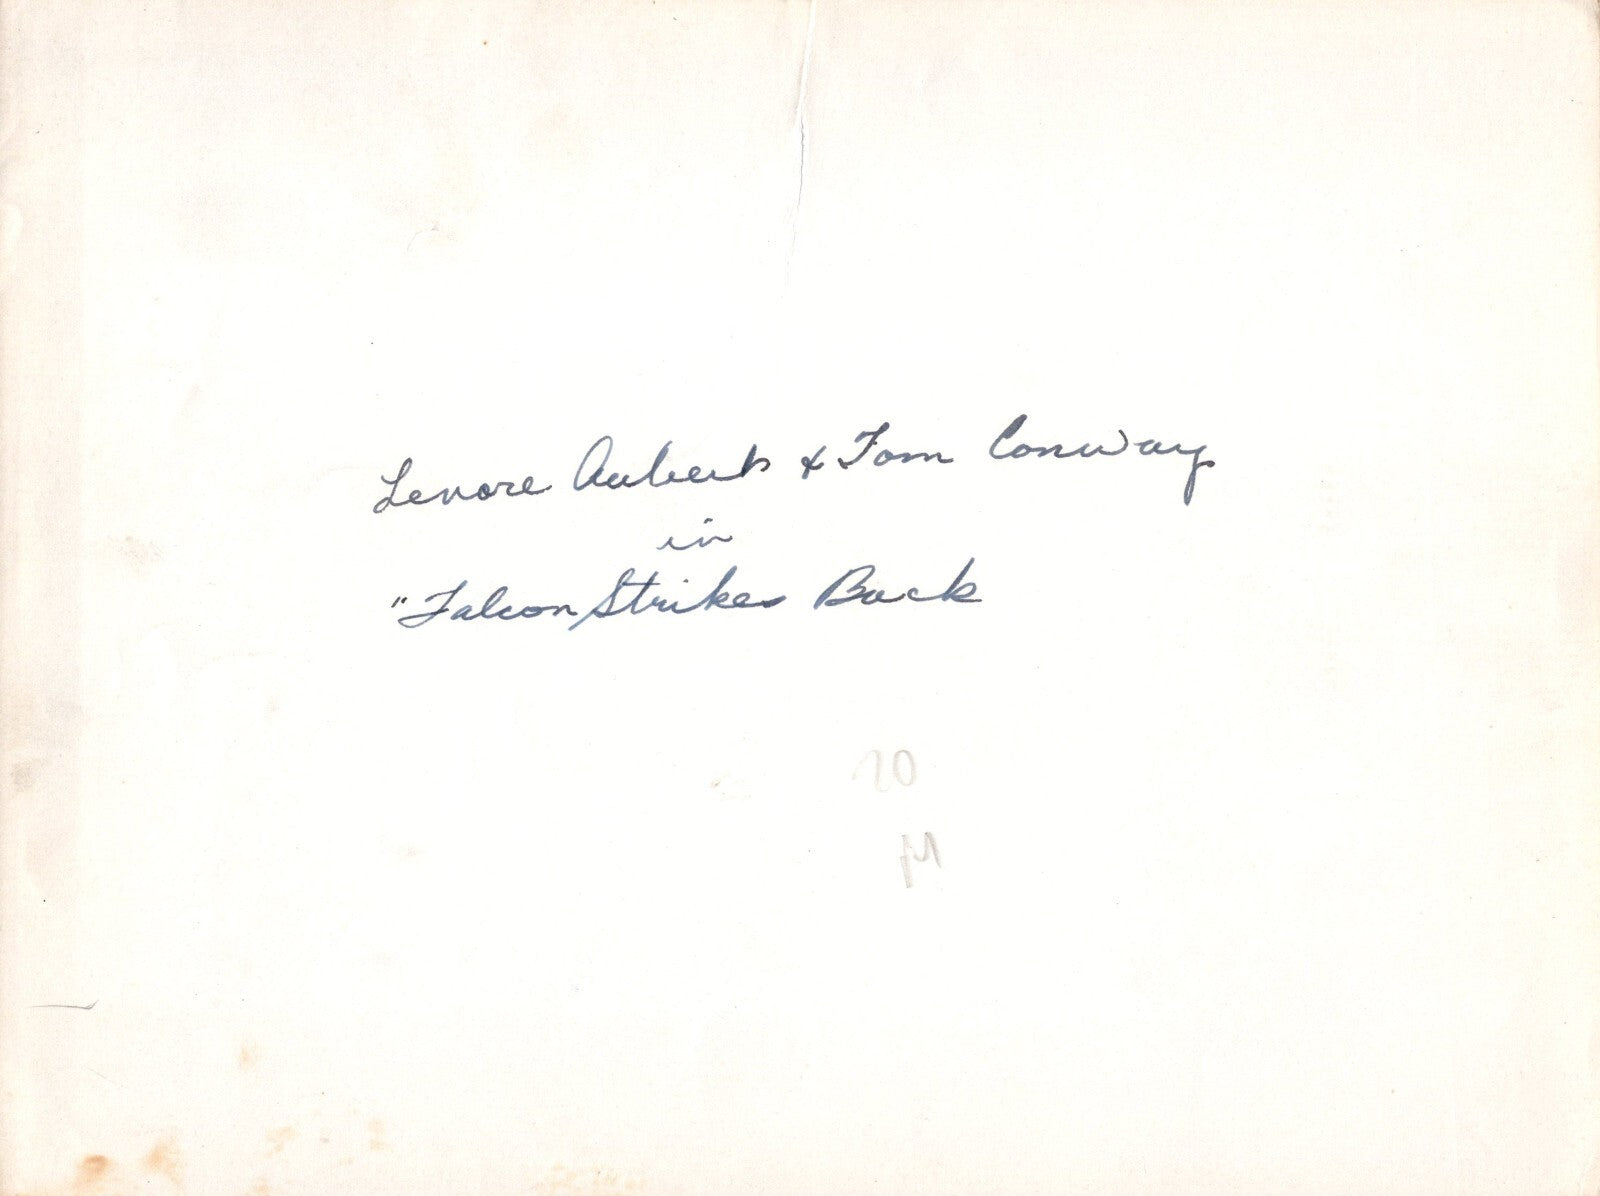 Lenore Aubert & Tom Conway
in
"Falcon Strikes Back
20